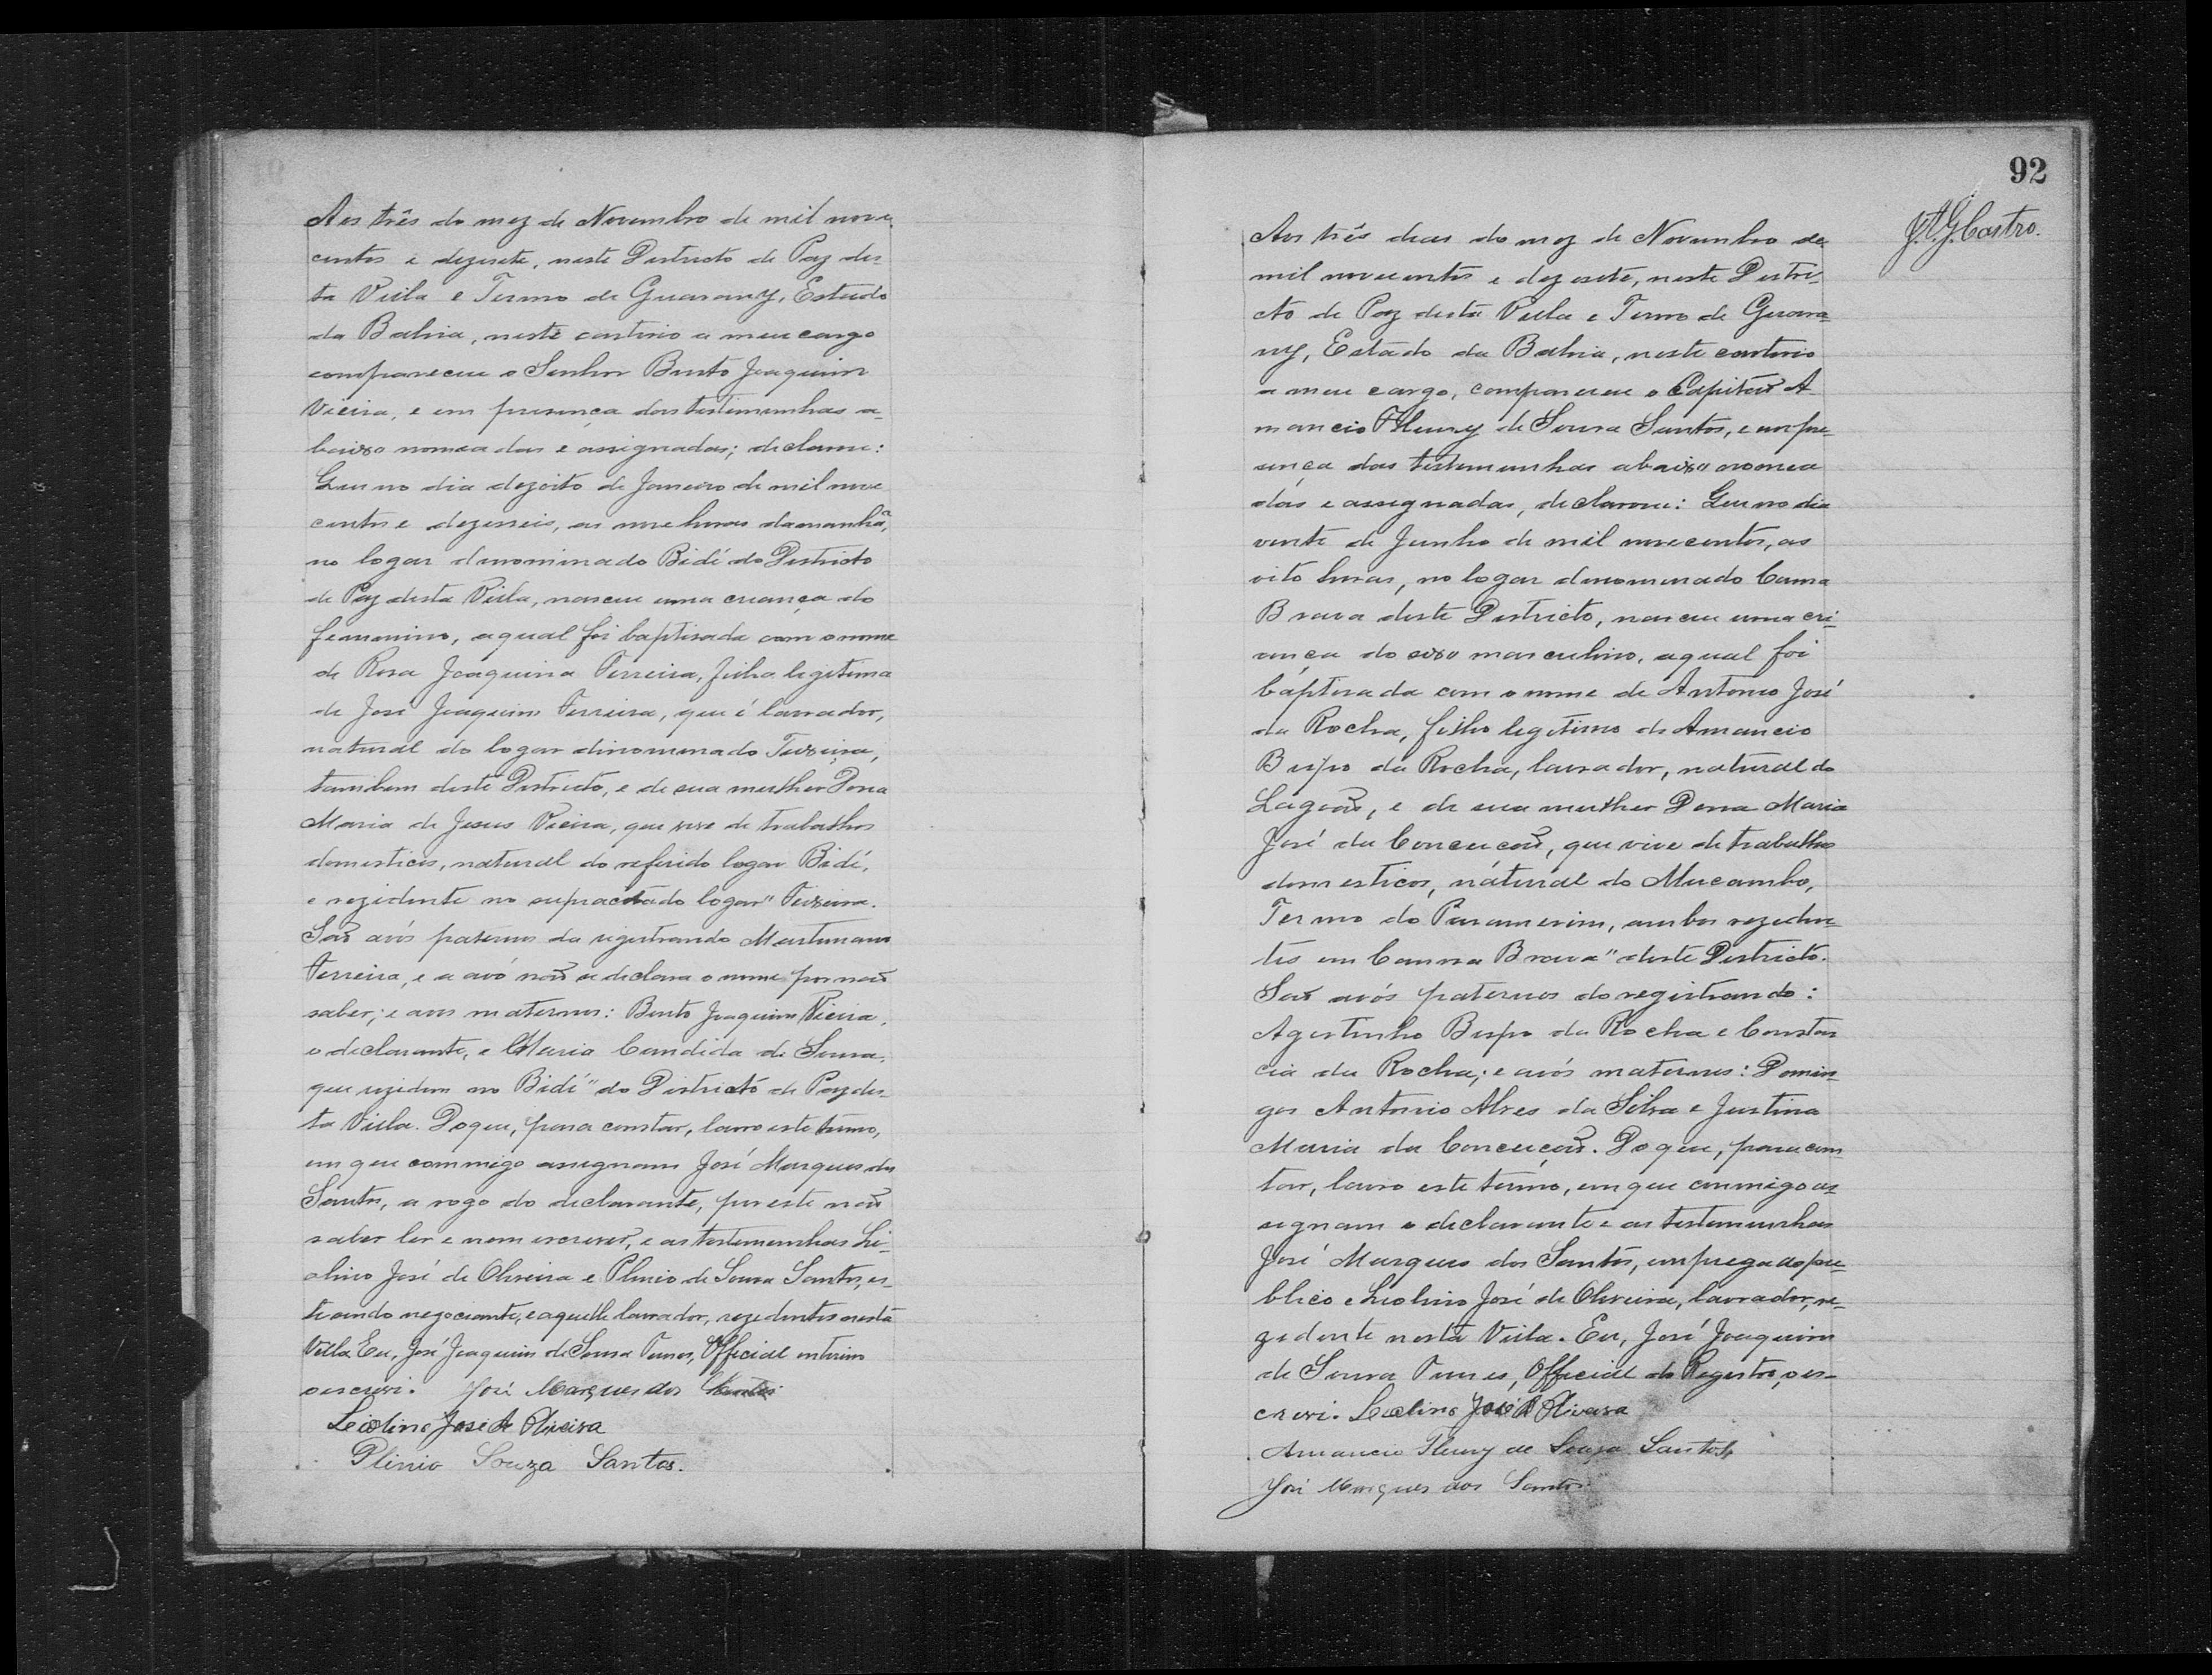 Aos três do mez de Novembro de mil nove
centos e dezesete, neste Districto de Paz des-
ta Villa e Termo de Guarany, Estado
da Bahia, neste cartorio a meu cargo
compareceu o Senhor Bento Joaquim
Vieira, e em presença das testemunhas a-
baixo nomeadas e assignadas; declarou:
Que no dia dezoito de Janeiro de mil nove
centos e dezesseis, as nove horas da manhã,
no logar denominado Bidé do Districto
de Paz desta Villa, nasceu uma creança do
femenino, a qual foi baptisada com o nome
de Rosa Joaquina Ferreira, filha legitima
de José Joaquim Ferreira, que é lavrador,
natural do logar dinomenado Teixeira,
tambem deste Districto, e de sua mulher Dona
Maria de Jesus Vieira, que vive de trabalhos
domesticos, natural do referido logar Bidé,
e rezidente no supracitado logar "Teixeira.
Saõ avós paternos da registrando Martiniano
Ferreira, e a avó naõ se declara o nome por naõ
saber; e avos maternos: Bento Joaquim Vieira,
o declarante, e Maria Candida de Sousa,
que rezidem no Bidé" do Districtó de Paz des-
ta Villa. Do que, para constar, lavro este termo,
em que commigo assignam José Marques dos
Santos, a rogo do declarante, por este naõ
saber ler e nem escrever, e as testemunhas Li-
olino José de Oliveira e Plinio de Sousa Santos, es-
te sendo negociante, e aquelle lavrador, rezidentes nesta
Villa. Eu, José Joaquim de Sousa Nunes, Official interino
o escrevi. José Marques dos Santos
Leiolino José de Oliveira
Plinio Souza Santos.
92
J.A.G. Castro.
Aos três dias do mez de Novembro de
mil novecentos e dezesete, neste Distri-
cto de Paz desta Villa e Termo de Guara-
ny, Estado da Bahia, neste cartorio
a meu cargo, compareceu o Capitaõ A-
mancio Fleury de Sousa Santos, e em pre-
sença das testemunhas abaixo nomea
das e assignadas, declarou: Que no dia
vinte de Junho de mil novecentos, as
oito horas, no logar denomenado Canna
Brava deste Districto, nasceu uma cri-
ança do sexo masculino, a qual foi
baptisada com o nome de Antonio José
da Rocha, filho legitimo de Amancio
Bispo da Rocha, lavrador, natural do
Lagoaõ, e de sua mulher Dona Maria
José da Conceicaõ, que vive de trabalhos
domesticos, natural do Mucambo,
Termo do Paramerim, ambos rezeden-
tes em Canna Brava" deste Districto.
Saõ avós paternos do registrando:
Agostinho Bispo da Rocha e Constan
cia da Rocha; e avós maternos: Domin-
gos Antonio Alves da Silva e Justina
Maria da Conceiçaõ. Do que, para cons-
tar, lavro este termo, em que commigo as-
signam o declarante e as testemunhas
José Marques dos Santos, empregado pu-
blico e Liolino José de Oliveira, lavrador, re-
zidente nesta Villa. Eu, José Joaquim
de Sousa Nunes, Official do Registro, o es-
crevi. Leiolino José de Oliveira
Amancio Fleury de Souza Santos,
José Marques dos Santos